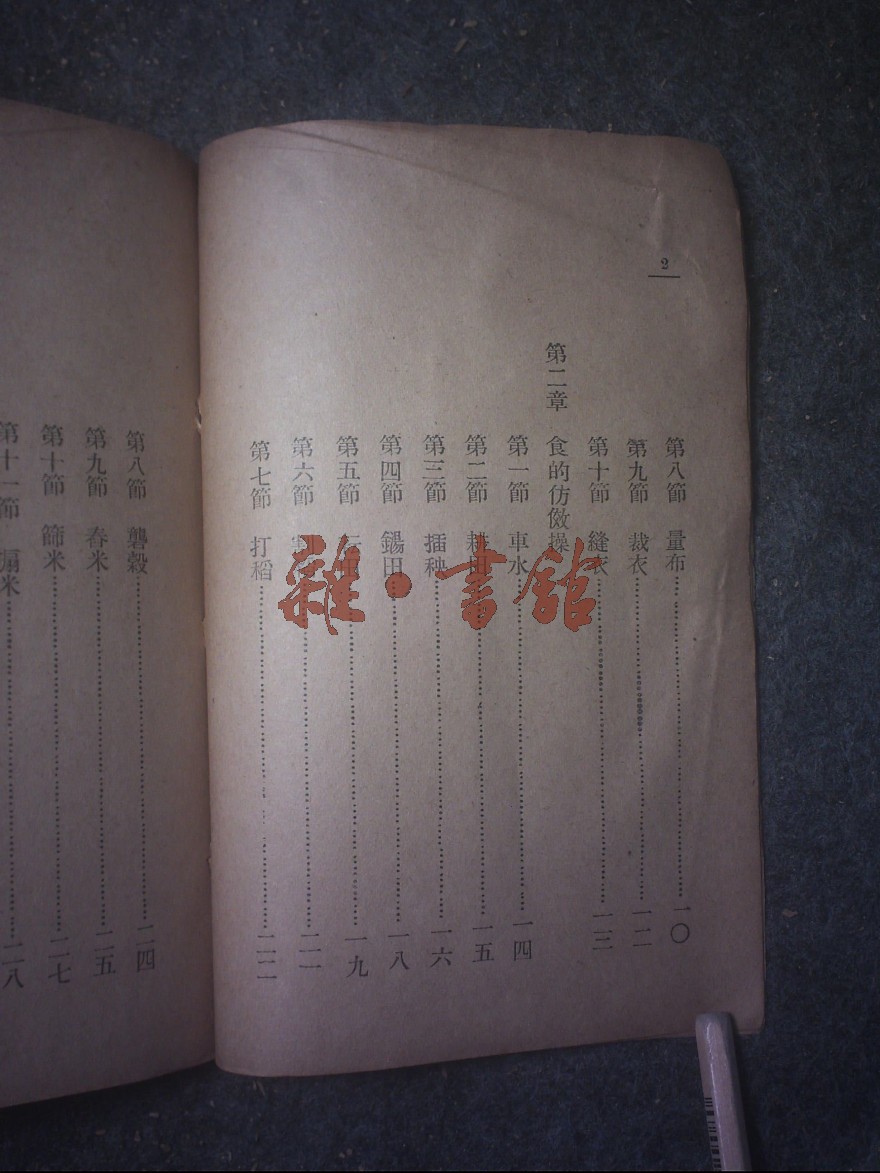 2
第八節 量布 一〇
第九節 裁衣 一二
第十節 縫衣 一三
第二章 食的仿傚操
第一節 車水 一四
第二節 耕田 一五
第三節 插秧 一六
第四節 鍚田 一八
第五節 一九
第六節 二一
第七節 打稻 二二
第八節 礱穀 二四
第九節 舂米 二五
第十節 篩米 二七
第十一節 扇米 二八
雜·書館